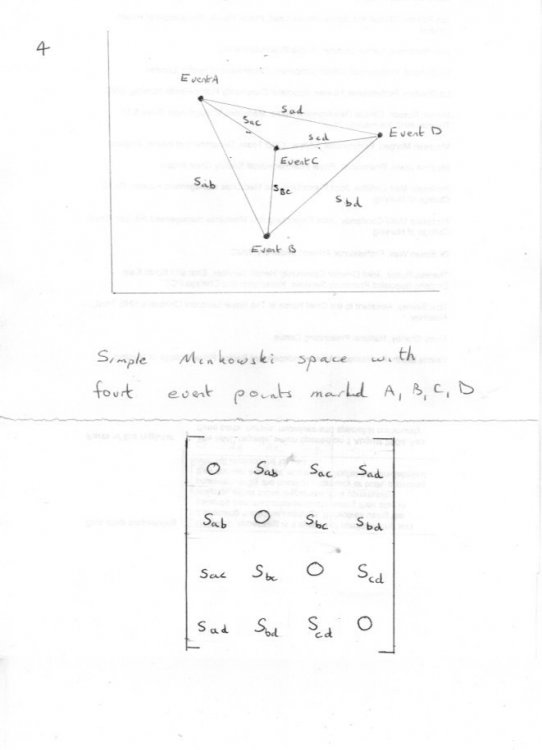 4
Event A
Sad
Sac
Scd
Event D
Event C
Sab
SBc
Sbd
Event B
Simple Minkowski space with
fourt event points marked A, B, C, D
O Sab Sac Sad
Sab O Sbc Sbd
Sac Sbc O Scd
Sad Sbd Scd O